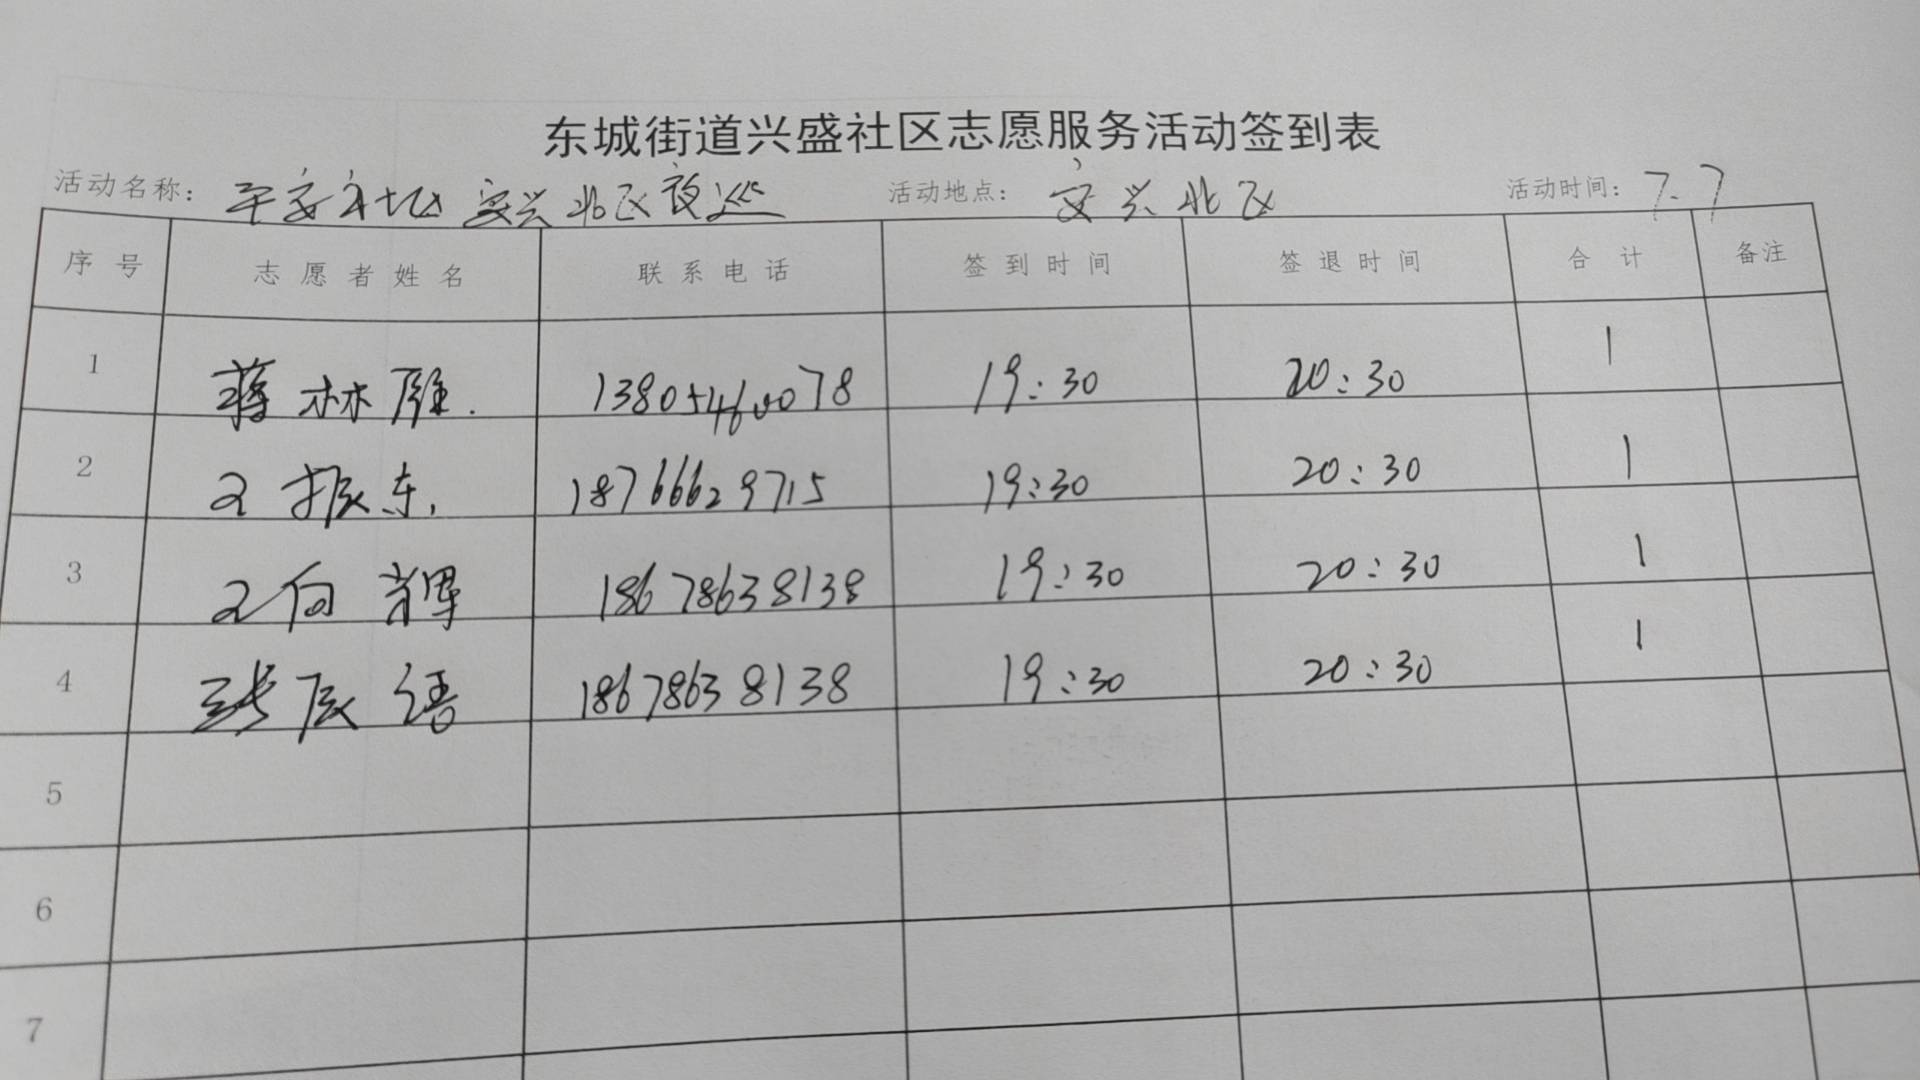 东城街道兴盛社区志愿服务活动签到表
活动名称: 平安社区 安兴北区夜巡 活动地点: 安兴北区 活动时间: 7.7
序号 志愿者姓名 联系电话 签到时间 签退时间 合计 备注
1 蒋林 13805460078 19:30 20:30 1
2 王振东 18766629715 19:30 20:30 1
3 王向辉 18678638138 19:30 20:30 1
4 张辰语 18678638138 19:30 20:30 1
5
6
7